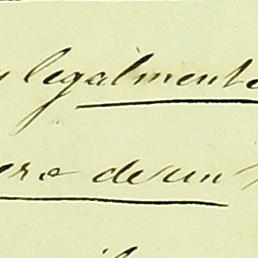 y legalmente
era de un